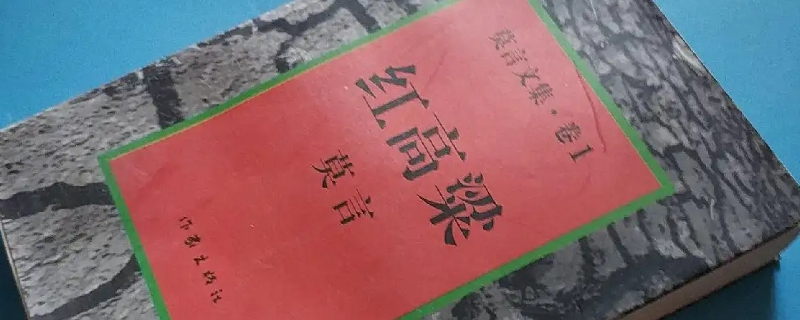 莫言文集·卷1
红高粱
莫言
作家出版社